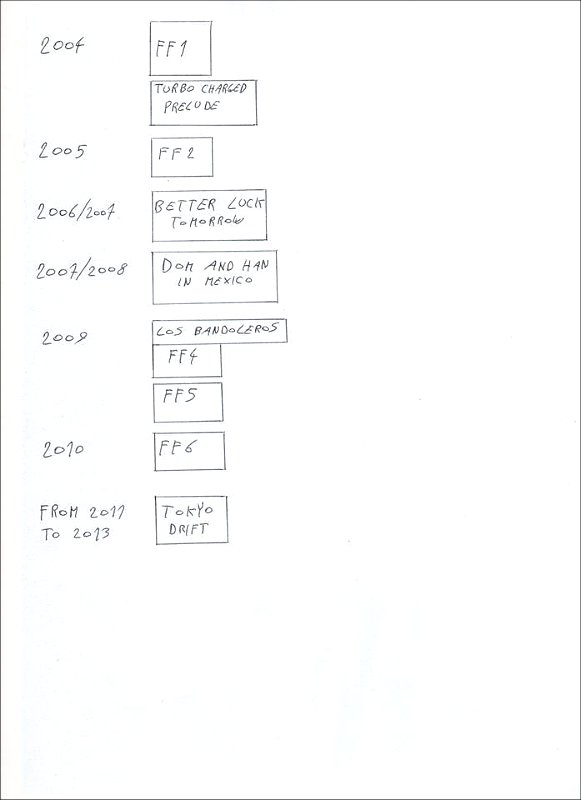 2004 FF1
TURBO CHARGED
PRELUDE
2005 FF2
2006/2007 BETTER LUCK
TOMORROW
2007/2008 DOM AND HAN
IN MEXICO
2009 LOS BANDOLEROS
FF4
FF5
2010 FF6
FROM 2011 TOKYO
TO 2013 DRIFT